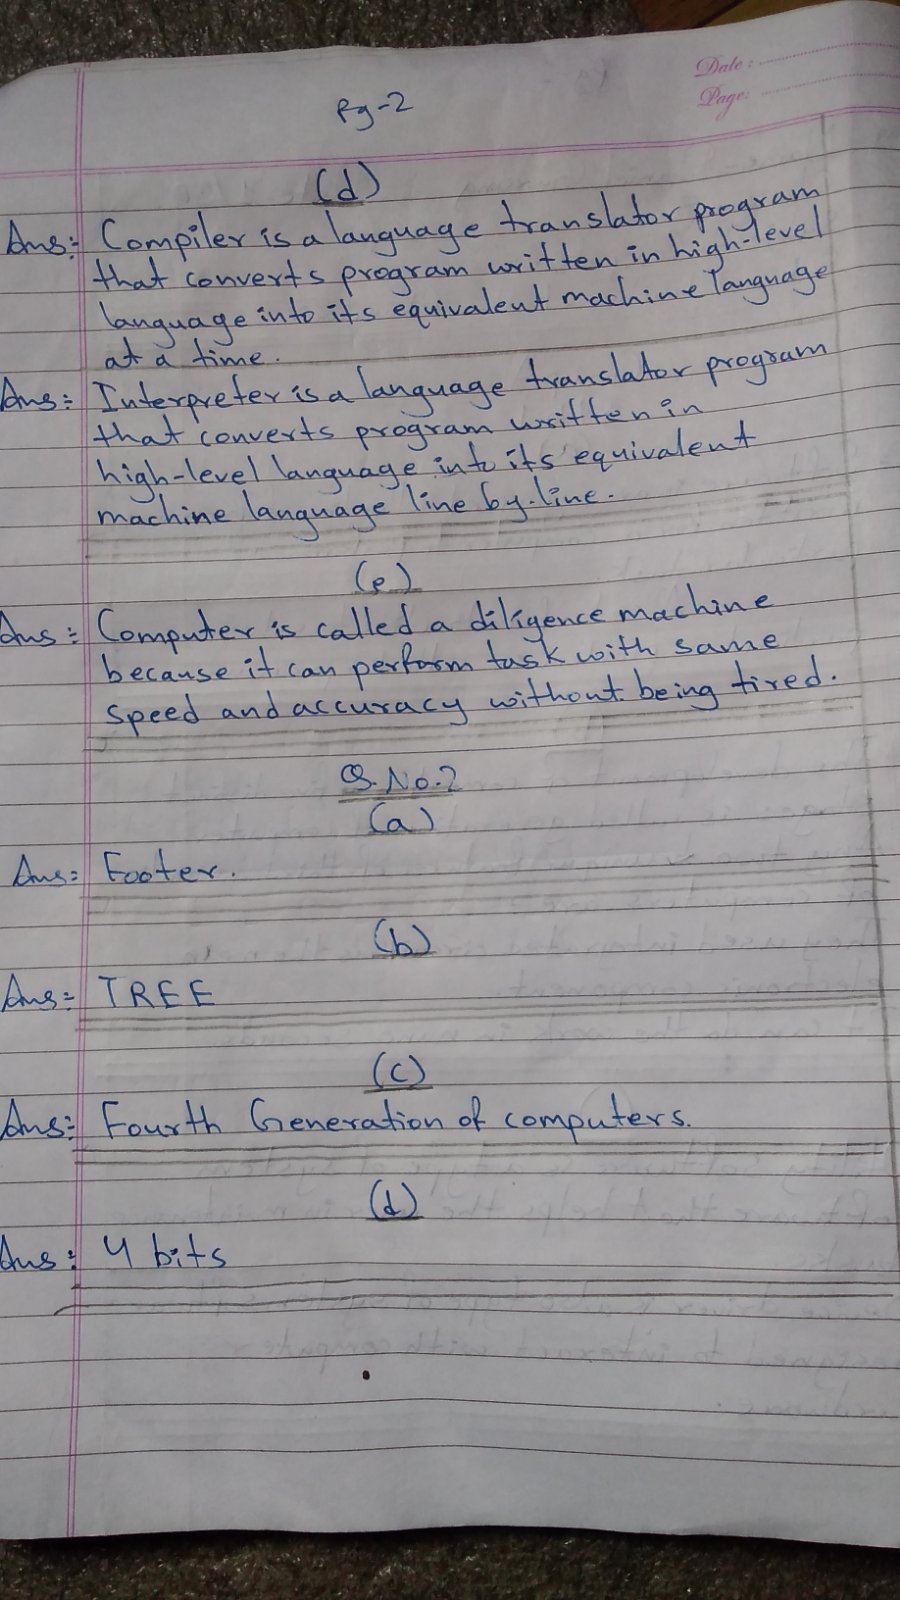 Date:
Page:
Pg-2
(d)
Ans: Compiler is a language translator program
that converts program written in high-level
language into its equivalent machine language
at a time.
Ans: Interpreter is a language translator program
that converts program written in
high-level language into its equivalent
machine language line by-line.
(e)
Ans: Computer is called a diligence machine
because it can perform task with same
speed and accuracy without being tired.
Q.No.2
(a)
Ans: Footer.
(b)
Ans: TREE
(c)
Ans: Fourth Generation of computers.
(d)
Ans: 4 bits